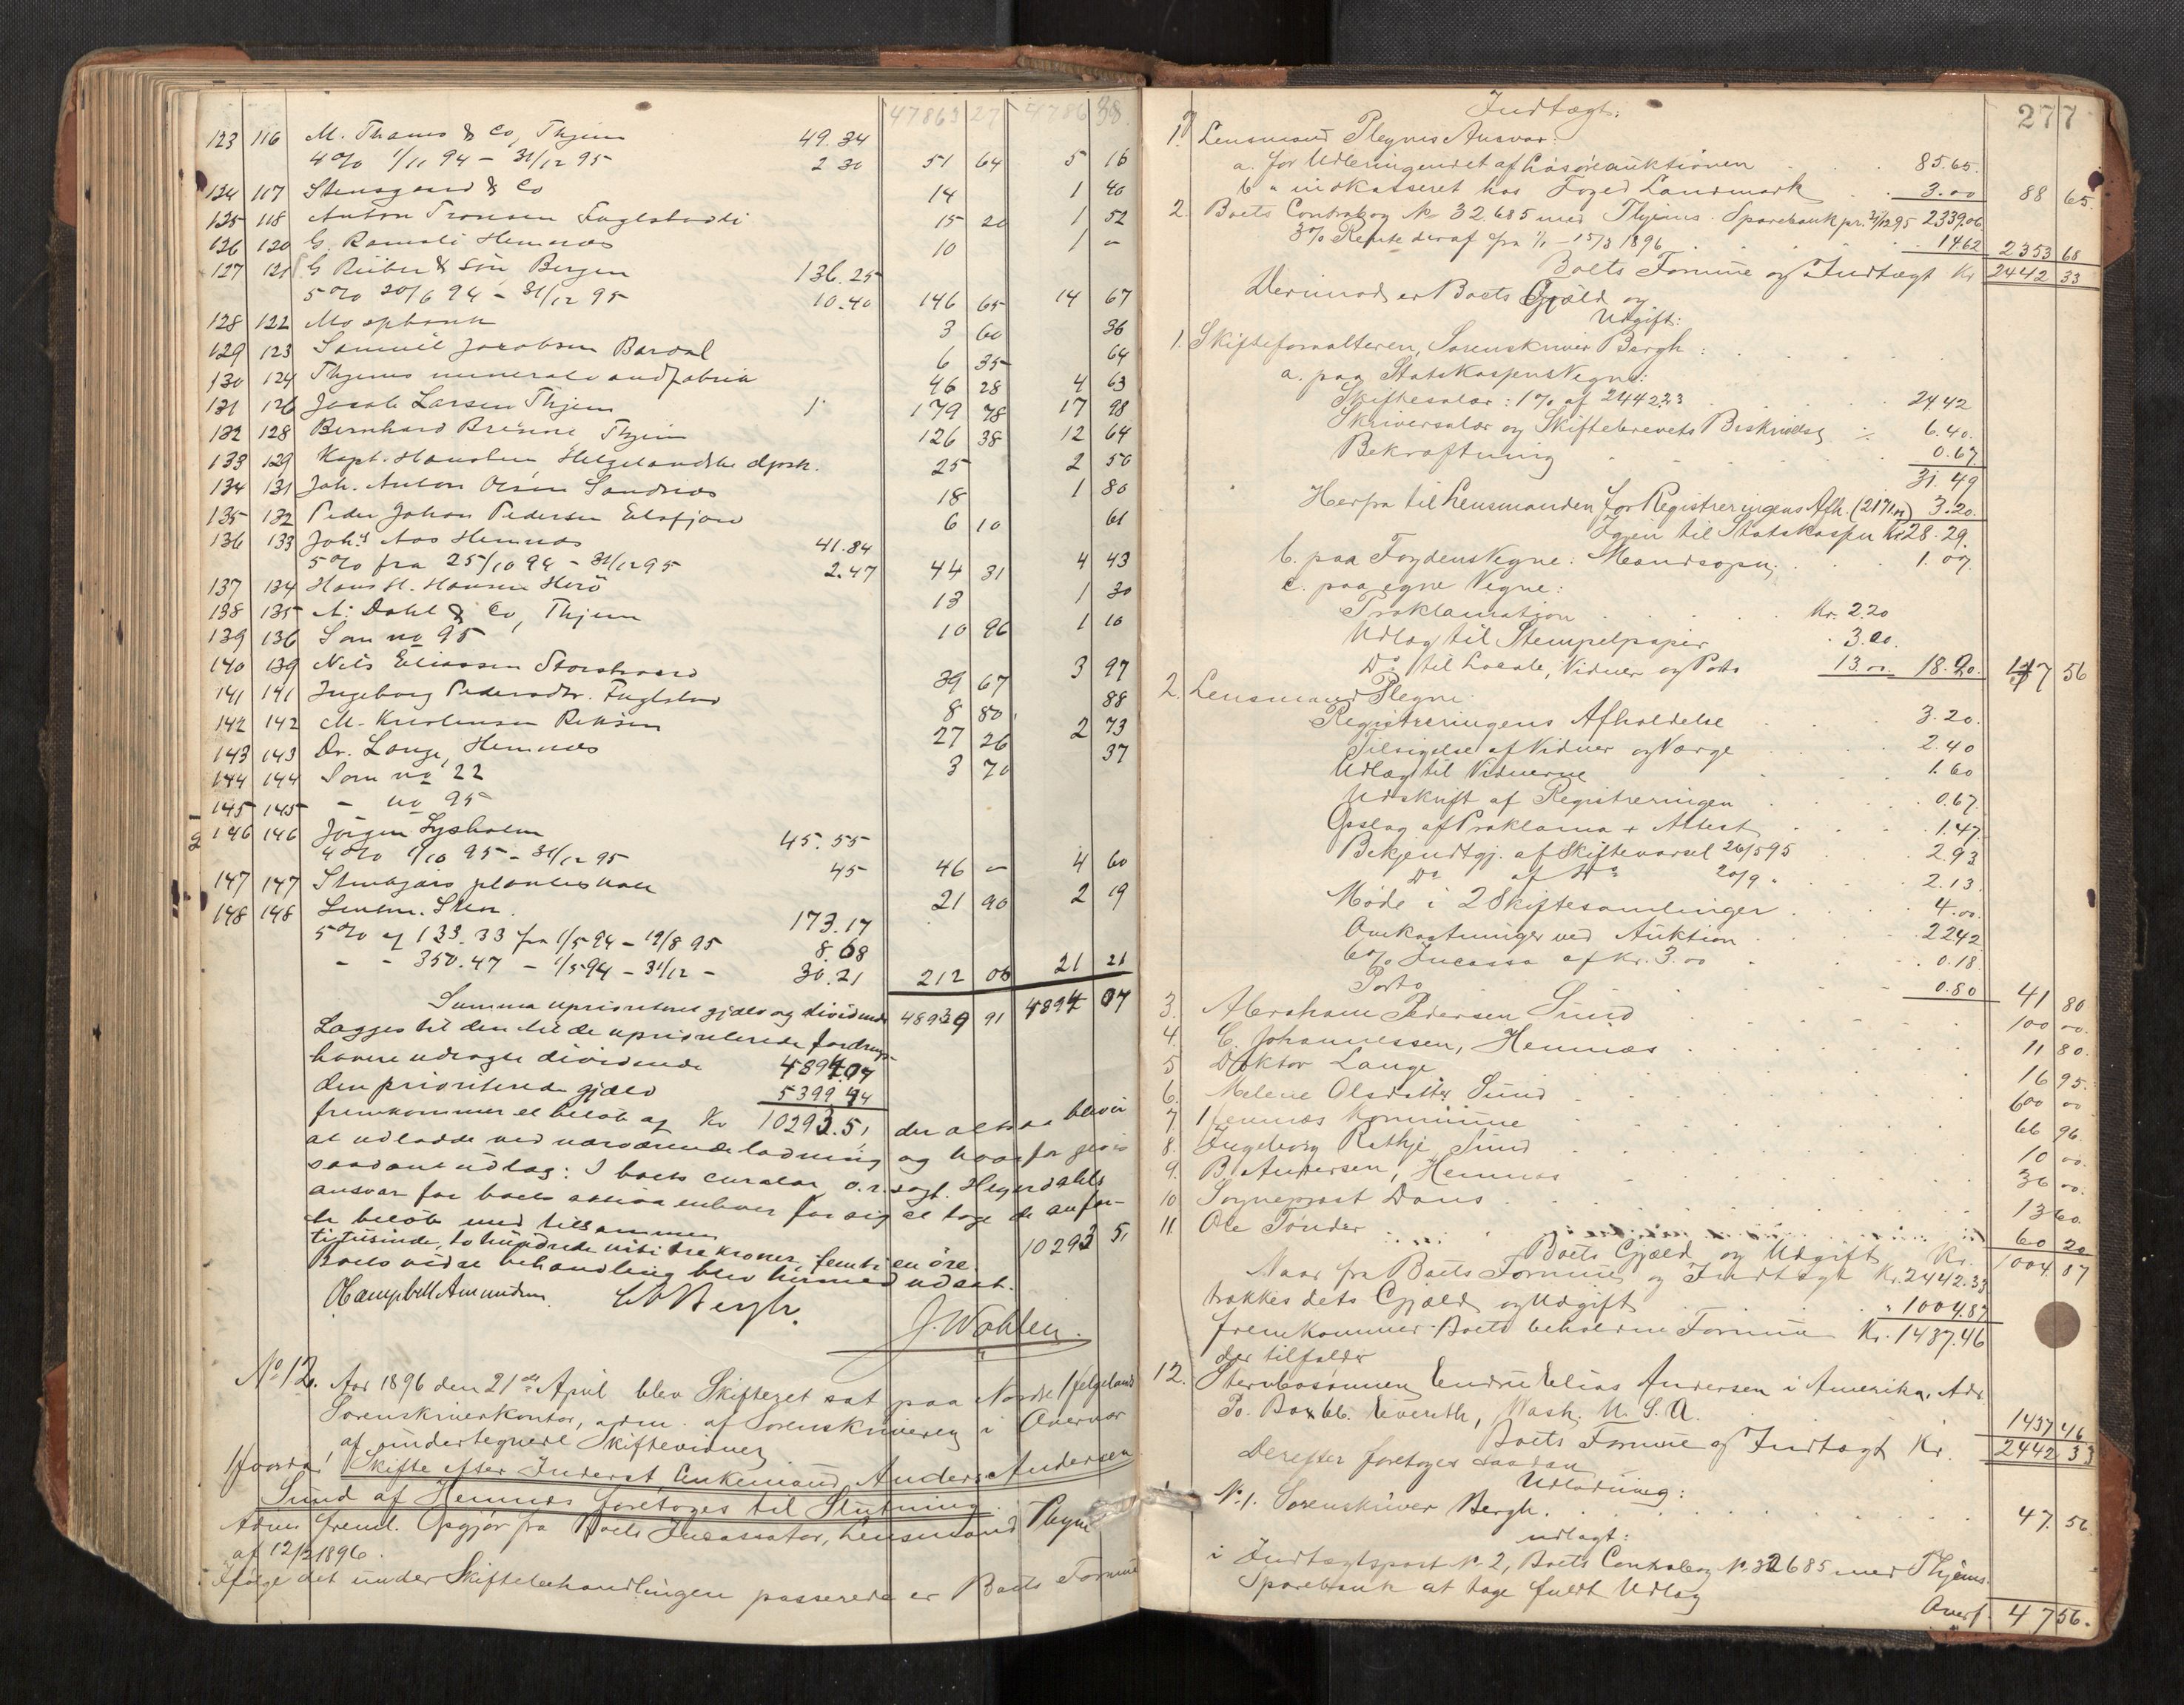 47863 27 4786 38
123 116 M. Thams & Co, Thjem 49.34
4% 1/11 94 - 31/12 95 2 30 51 64 5 16
124 117 Stensgaard & Co 14 1 40
125 118 Anton Tronsen Fuglstad 15 20 1 52
126 120 G. Hemnæs 10 1 -
127 121 G Rieber & Søn, Bergen 136.25
5% 20/6 94 - 31/12 95 10.40 146 65 14 67
128 122 3 60 36
129 123 Samuel Jacobsen Bardal 6 35 64
130 124 Thjems mineralvandfabrik 46 28 4 63
131 126 Jacob Larsen Thjem 179 78 17 98
132 128 Bernhard Thjem 126 38 12 64
133 129 Kapt. Helgelandske dpsk. 25 2 50
134 131 Joh. Anton Olsen Sandnes 18 1 80
135 132 Peder Johan Pedersen Elsfjord 6 10 61
136 133 Joh.s Aas Hemnæs 41.84
5% fra 25/10 94 - 31/12 95 2.47 44 31 4 43
137 134 Hans H. Hansen Herö 13 1 30
138 135 A. Dahl & Co, Thjem 10 96 1 10
139 136 Som no 95
140 139 Nils Eliassen Storstrand 39 67 3 97
141 141 Ingeborg Pedersdtr. Fuglstad 8 80 88
142 142 M. Kristensen 27 26 2 73
143 143 Dr. Lange, Hemnæs 3 70 37
144 144 Som no 22
145 145 - no 95
146 146 Jörgen Lysholm 45.55
4% 1/10 95 - 31/12 95 45 46 - 4 60
147 147 Stenkjærs planteskole 21 90 2 19
148 148 Lensm. Sten. 173.17
5% af 133.33 fra 1/5 94 - 19/8 95 8.68
- - 350.47 - 1/5 94 - 31/12 - 30.21 212 06 21 21
Summa uprioriteret gjæld og dividende 48939 91 4894 07
Lægges til den til de uprioriterede fordrings-
havere udregte dividende 4894.07
den prioriterede gjæld 5399 44
fremkommer et beløb af Kr 10293.51 der altsaa bliver
at udlodde ved nærværende lodning og hvorfor gives
saadant udlæg: I boets curator, o.r.sagf. Heyerdahls
ansvar for boets aktiva enhver for sig at tage de anfør-
te beløb med tilsammen
titusinde, to hundrede nitti tre kroner, femti en öre. 10293 51
Boets videre behandling blev hermed udsat.
HCampbellAmundsen. CABergh. J. Wahlen.
No 12. Aar 1896 den 21de April blev Skifteret sat paa Nordre Helgelands
Sorenskriverkontor, adm. af Sorenskriveren i Overvær
af undertegnede Skiftevidner
Hvorda: Skifte efter Inderst, Enkemand Anders Andersen
Sund af Hemnæs foretoges til Slutning.
Adm. freml. Opgjør fra Boets Incassator, Lensmand Plegne
af 12/3 1896.
Ifølge det under Skiftebehandlingen passerede er Boets Formue
277
Indtægt:
1. Lensmand Plegnes Ansvar:
a. for Udbringendet af Løsøreauktionen 85.65.
b " indkasseret hos Foged Landmark 3.00 88 65.
2. Boets Contrabog No 32685 med Thjems. Sparebank pr. 31/12 95 2339.06
3% Rente deraf fra 1/1 - 15/3 1896 14.62 2353 68
Boets Formue og Indtægt Kr 2442 33
Derimod er Boets Gjæld og
Udgift:
1. Skifteforvalteren, Sorenskriver Bergh:
a. paa Statskassens Vegne:
Skiftesalær: 1% af 2442.33 24.42
Skriversalær og Skiftebrevets Beskrivelse 6.40.
Bekræftning 0.67
31.49
Herfra til Lensmanden for Registreringens Afh. 3.20.
Igjen til Statskassen Kr 28.29.
b. paa Fogdens Vegne: 1.07.
c. paa egne Vegne:
Proklamation Kr. 2.20
Udlæg til Stempelpapir 3.00.
Do til Lokale, Vidner og Porto 13.00. 18.20. 47 56
2. Lensmand Plegne.
Registreringens Afholdelse 3.20.
Tilsigelse af Vidner og Værge 2.40
Udlæg til Vidnerne 1.60
Udskrift af Registreringen 0.67.
Opslag af Proklama + Attest 1.47.
Bekjendtgj. af Skiftevarsel 26/5 95 2.93
Do af Do 20/9 " 2.13.
Møde i 2 Skiftesamlinger 4.00.
Omkostninger ved Auktion 22.42
6% Incasso af Kr. 3.00 0.18.
Porto 0.80 41 80
3. Abraham Pedersen Sund 100 00.
4. C. Johannessen, Hemnæs 11 80.
5 Doktor Lange 16 95.
6. Melene Olsdatter Sund 600 00
7. Hemnæs Kommune 66 96.
8. Ingeborg Rethje Sund 10 00.
9. B. Andersen, Hemnæs 36 00.
10 Sogneprest Daus 13 60.
11 Ole Tønder 60 20
Boets Gjæld og Udgift Kr. 1004 87
Naar fra Boets Formue og Indtægt Kr. 2442.33
trækkes dets Gjæld og Udgift " 1004.87
fremkommer Boets beholdne Formue Kr. 1437.46
der tilfalder
12. Sterbosønnen Endre Elias Andersen i Amerika, Adr.
Po. Box 66. Everith, Wash. U. S. A. 1437 46
Boets Formue og Indtægt Kr. 2442 33
Derefter foretoges saadan
Udlodning:
No. 1. Sorenskriver Bergh. 47. 56
udlagt:
i Indtægtspost No 2, Boets Contrabog No. 32685 med Thjems.
Sparebank at tage fuldt Udlæg
Overf. 47 56.